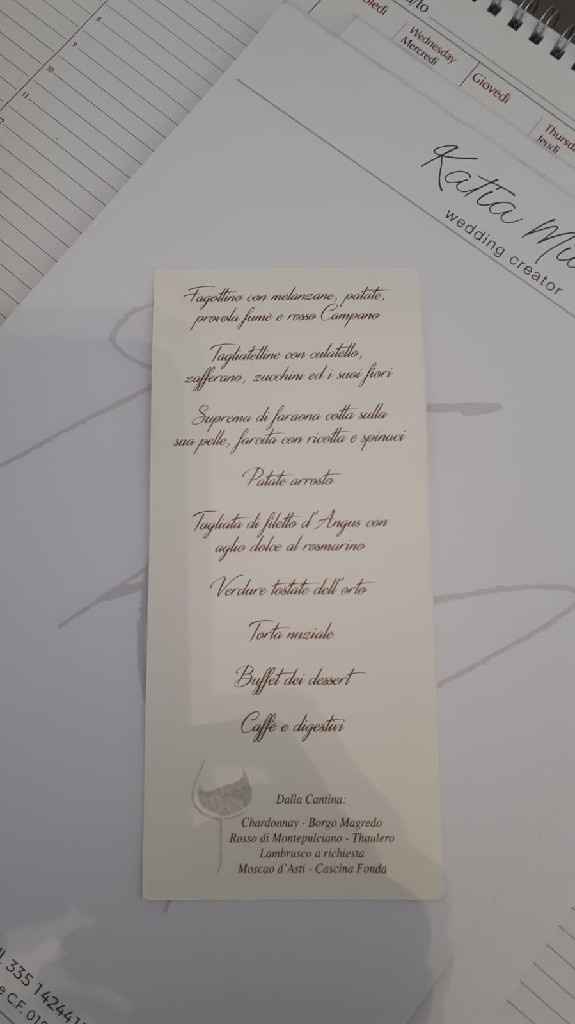 8
9
10
11
Wednesday
Mercredi
Giovedì
Jeudi
Katia
wedding creator
Fagottino con melanzane, patate,
provola fumè e rosso Campano
Tagliatelline con culatello,
zafferano, zucchini ed i suoi fiori
Suprema di faraona cotta sulla
sua pelle, farcita con ricotta e spinaci
Patate arrosto
Tagliata di filetto d'Angus con
aglio dolce al rosmarino
Verdure tostate dell'orto
Torta nuziale
Buffet dei dessert
Caffè e digestivi
Dalla Cantina:
Chardonnay - Borgo Magredo
Rosso di Montepulciano - Thaulero
Lambrusco a richiesta
Moscao d'Asti - Cascina Fonda
335 142441
C.F.